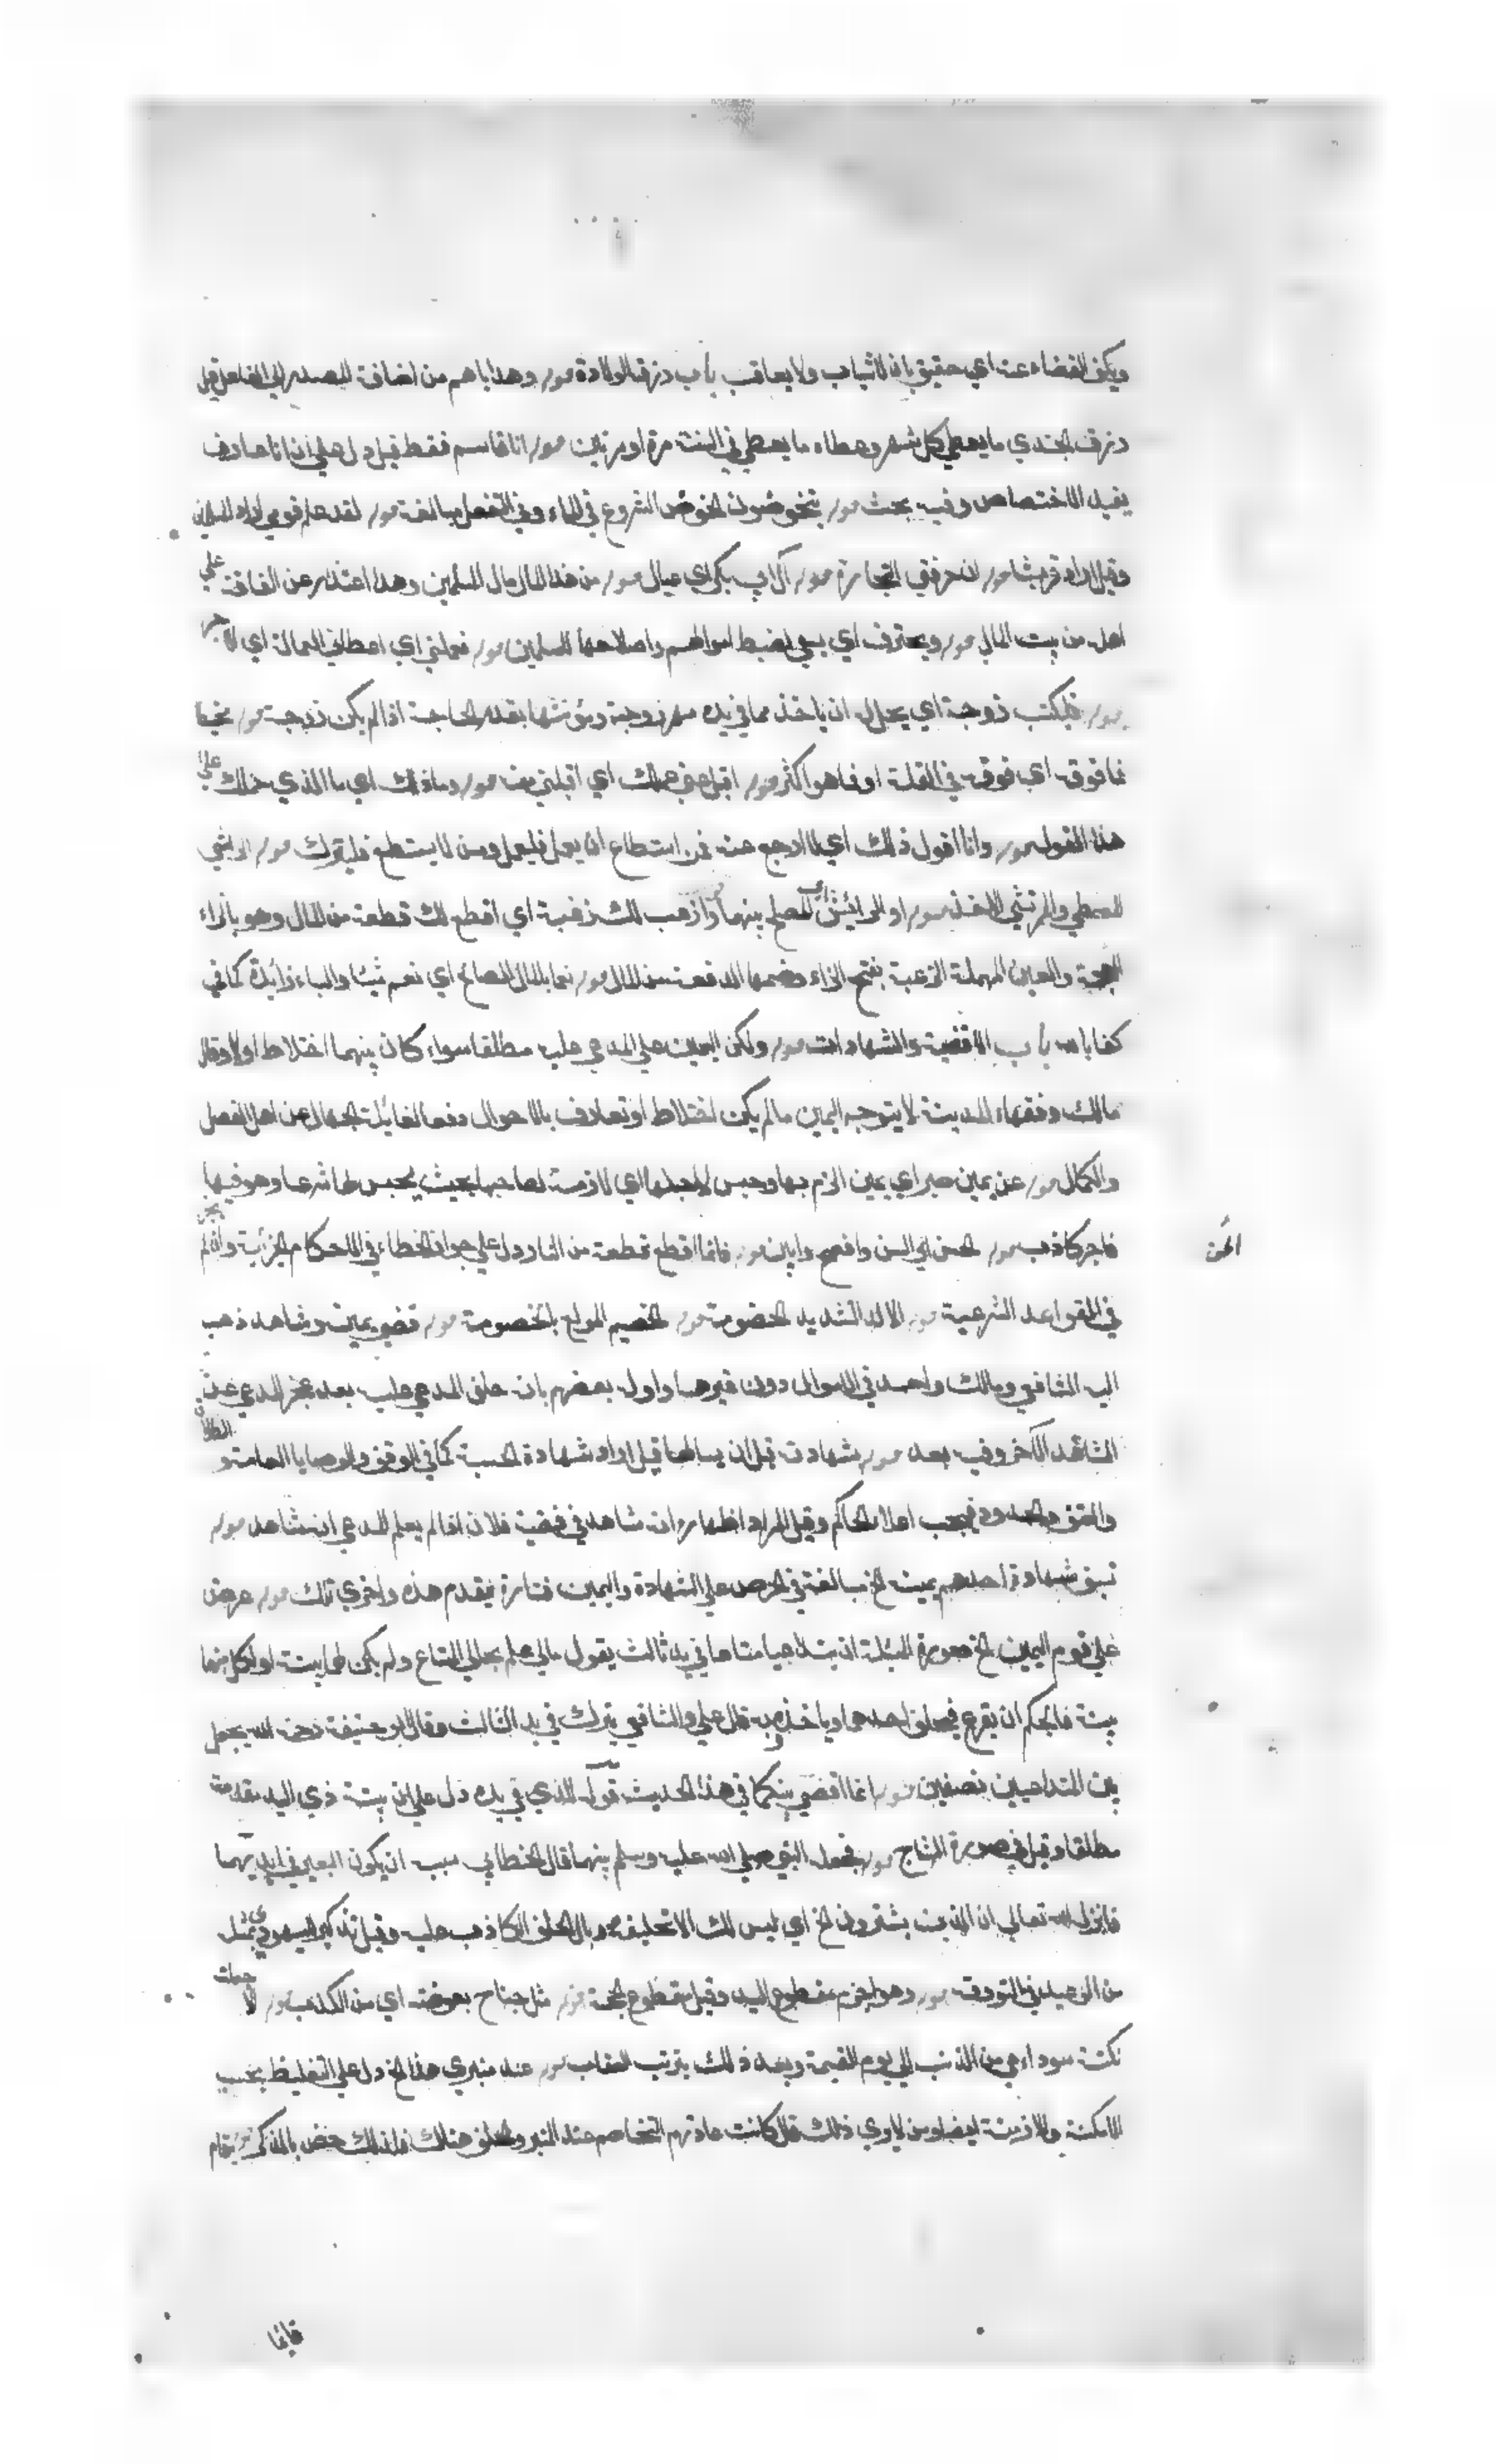 ويكن القضاء عنه اي حقيق بان لا يثاب ولا يعاقب باب رزق الولادة قوله وهداياهم من اضافة المصدر الى الفاعل قيل
رزق الجندي ما يعطي كل شهر وعطاء ما يعطي في السنة مرة او مرتين قوله انا قاسم فقط قيل دل على ان انا صادف
يفيد الاختصاص وفيه بحث قوله يتخوضون الخوض الشروع في الماء وفي التفعل مبالغة قوله لقد علم قومي اراد المسلمين
وقيل اراد قريشا قوله ان حرفتي التجارة قوله آل ابي بكر اي عيال قوله من هذا المال مال المسلمين وهذا اعتذار عن انفاقه على
اهله من بيت المال قوله ويحترف اي يسعى لضبط اموالهم واصلاحها للمسلمين قوله فعملني اي اعطاني العمالة اي الاجر
قوله فليكتسب زوجة اي يحل له ان ياخذ مما في يده مهر زوجة ومؤنتها بقدر الحاجة اذا لم يكن زوجة قوله مخيطا
فما فوقه اي فوقه في القلة او فما هو اكثر قوله اقبل عني عملك اي اقبلني منه قوله وما ذلك اي ما الذي حملك على
هذا القول قوله وانا اقول ذلك اي لا ارجع عنه فمن استطاع ان يعمل فليعمل ومن لا يستطع فليترك قوله الراشي
المعطي والمرتشي الآخذ قوله او الرائش اي المصلح بينهما وازعب لك زعبة اي اقطع لك قطعة من المال وهو بالزاء
المعجمة والعين المهملة الزعبة بفتح الزاء وضمها الدفعة من المال قوله نعما بالمال الصالح اي نعم شيئا والباء زائدة كما في
كفى بالله باب الاقضية والشهادات قوله ولكن اليمين على المدعى عليه مطلقا سواء كان بينهما اختلاط او لا وقال
مالك وفقهاء المدينة لا يتوجه اليمين ما لم يكن اختلاط او تعارف بالاحوال دفعا لغائلة الجهال عن اهل الفضل
والكمال قوله عن يمين صبر اي يمين الزم بها وحبس لاجلها اي لازمة لصاحبها بحيث يحبس لها شرعا وهو فيها
فاجر كاذب قوله الحن اي السن وافصح وابين قوله فانما اقطع قطعة من النار دل على جواز الخطاء في الاحكام الجزئية وان لم يجز
الحن
في القواعد الشرعية قوله الالد الشديد الخصومة قوله الخصيم المولع بالخصومة قوله قضى بيمين وشاهد ذهب
اليه الشافعي ومالك واحمد في الاموال دون غيرها واول بعضهم بانه حلف المدعى عليه بعد عجز المدعي عن
الشاهد الآخر وفيه بعد قوله بشهادته قبل ان يسالها قيل اراد شهادة الحسبة كما في الوقف والوصايا العامة و الطلاق
والعتق والحدود فيجب اعلام الحاكم وقيل المراد اظهاره انه شاهد في قضية فلان اذا لم يعلم المدعي انه شاهد قوله
تسبق شهادة احدهم يمينه الخ مبالغة في الحرص على الشهادة واليمين فتارة يقدم هذه واخرى تلك قوله عرض
على قوم اليمين الخ صورة المسئلة ان يتداعيا متاعا في يد ثالث يقول مالي علم بحال المتاع ولم يكن لهما بينة او لكل منهما
بينة فالحكم ان يقرع فيحلف احدهما وياخذ وبه قال علي والشافعي يترك في يد الثالث وقال ابو حنيفة رحمه الله يجعل
بين المتداعيين نصفين قوله انما اقضي بينكما في هذا الحديث قوله للذي في يده دل على ان بينة ذي اليد مقدمة
مطلقا وقيل في صورة النتاج قوله فجعله النبي صلى الله عليه وسلم بينهما قال الخطابي سبب ان يكون البعير في ايديهما
فانزل الله تعالى ان الذين يشترون الخ اي ليس لك الا تحليفه وبال الحلف الكاذب عليه وقيل تذكير اليهودي بمثل
من الوعيد في التورية قوله وهو اجذم مقطوع اليد وقيل مقطوع الحجة قوله مثل جناح بعوضة اي من الكذب قوله الا جعلت
نكتة سوداء هي من الذنب الى يوم القيمة وبعد ذلك يترتب العقاب قوله عند منبري هذا الخ دل على التغليظ بحسب
الامكنة والازمنة ايضا ومن لا يرى ذلك قال كانت عادتهم التخاصم عند المنبر والحلف هنالك فلذلك خص بالذكر قوله بقام
قايما